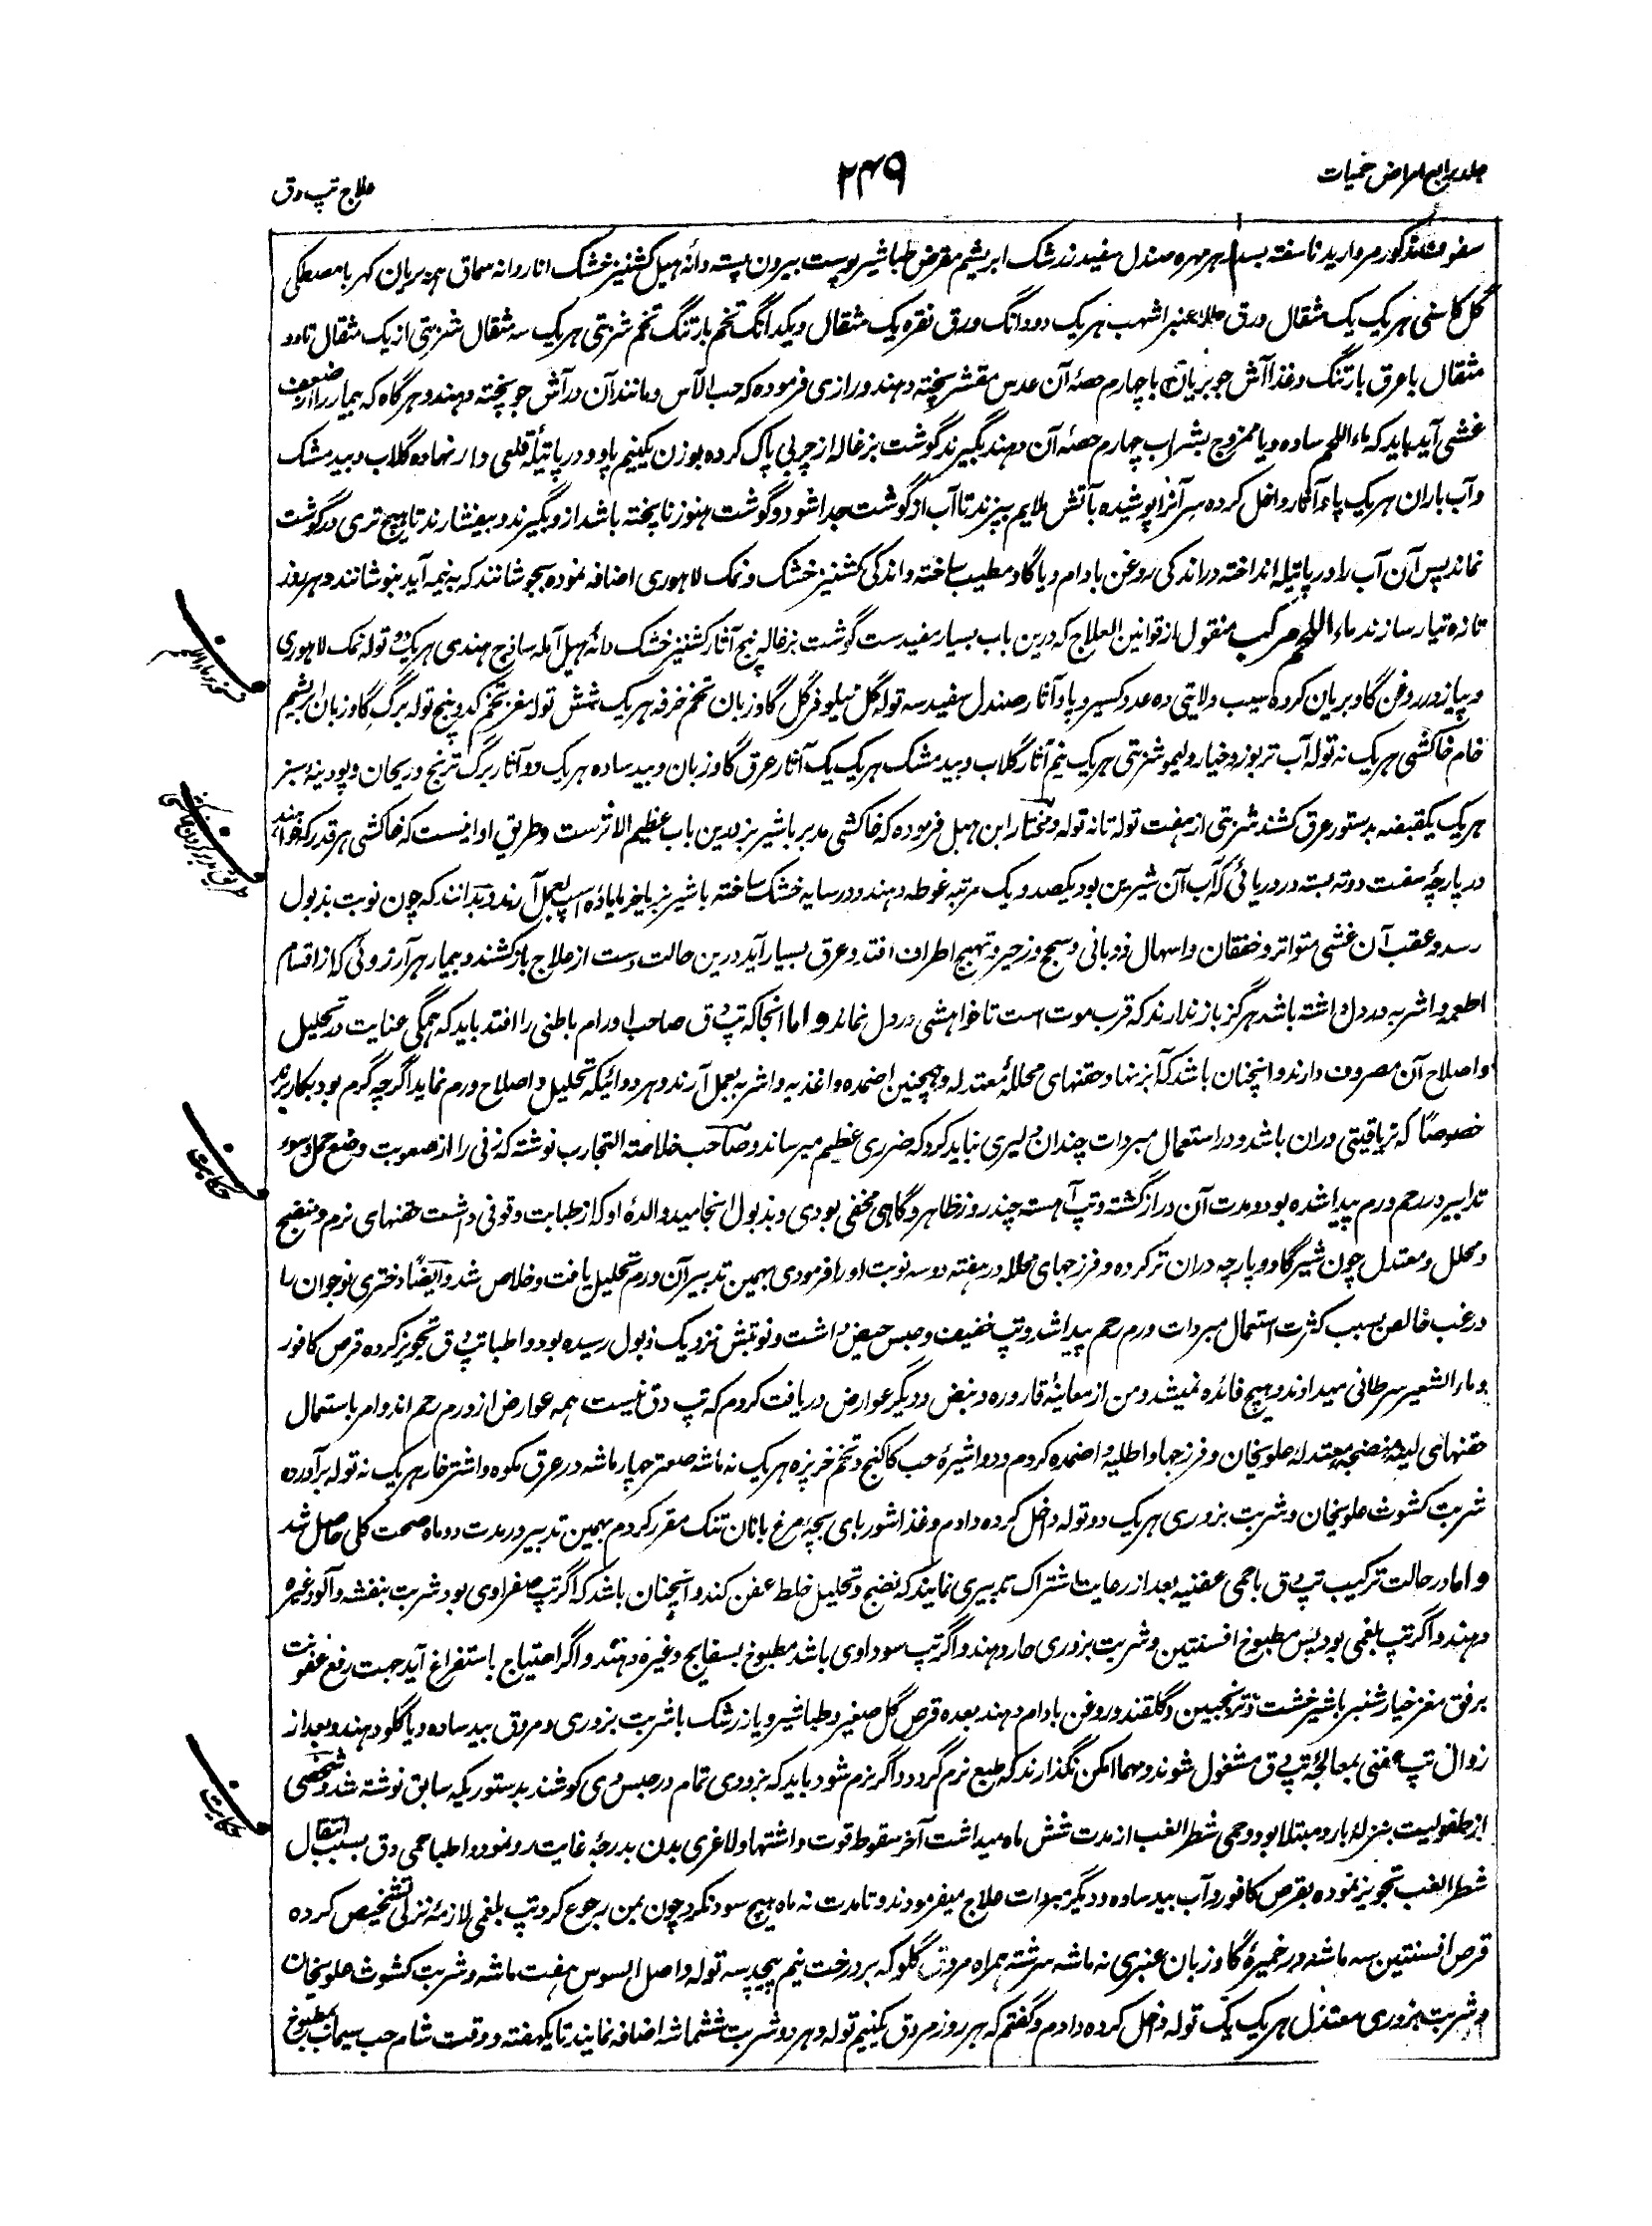 جلد رابع امراض حمیات
۲۴۹
علاج تپ دق
سفوف مذکور مروارید ناسفته بسد زهر مهره صندل سفید زرشک ابریشم مقرض طباشیر پوست بیرون پسته دانهٔ هیل کشنیز خشک اناردانه سماق همه بریان کهربا مصطکی
گل هر یک یک مثقال ورق طلا عنبر اشهب هر یک دو دانگ ورق نقره یک مثقال و یکدانگ تخم بارتنگ تخم شربتی هر یک سه مثقال شربتی از یک مثقال تا دو
مثقال با عرق بارتنگ و غذا آش جو بریان با چهارم حصهٔ آن عدس مقشر پخته دهند و رازی فرموده که حب الآس و مانند آن در آش جو پخته دهند و هرگاه که بیمار را از ضعف
غشی آید باید که ماء اللحم ساده و یا ممزوج بشراب چهارم حصهٔ آن دهند بگیرند گوشت بزغاله از چربی پاک کرده بوزن یکنیم پاو و در پاتیلهٔ قلعی دار نهاده گلاب و بید مشک
و آب باران هر یک پاء آثار داخل کرده سر آنرا پوشیده بآتش ملایم بپزند تا آب از گوشت جدا شود و گوشت هنوز ناپخته باشد ازو بگیرند و بیفشارند تا هیچ تری در گوشت
نماند پس آن آب را در پاتیله انداخته در اندکی روغن بادام و یا گاو مطیب ساخته و اندکی کشنیز خشک و نمک لاهوری اضافه نموده بجوشانند که به نیمه آید بنوشانند و هر روز
تازه تیار سازند ماء اللحم مرکب منقول از قوانین العلاج که درین باب بسیار مفیدست گوشت بزغاله پنج آثار کشنیز خشک دانهٔ هیل آمله ساذج هندی هر یک دو توله نمک لاهوری
و پیاز در روغن گاو بریان کرده سیب ولایتی ده عدد کسیرو پاو آثار صندل سفید سه توله گل نیلوفر گل گاوزبان تخم خرفه هر یک شش توله مغز تخم کدو پنج توله برگ گاوزبان ابریشم
خام خاکشی هر یک نه توله آب تربوز و خیار و لیمو شربتی هر یک نیم آثار گلاب و بید مشک هر یک یک آثار عرق گاوزبان و بید ساده هر یک دو آثار برگ ترنج و ریحان و پودینهٔ سبز
هر یک یکقبضه بدستور عرق کشند شربتی از هفت توله تا نه توله و مختار ابن هبل فرموده که خاکشی مدبر باشیر بز درین باب عظیم الاثرست و طریق او اینست که خاکشی هر قدر که خواهند
در پارچهٔ سفت دوته بسته در دریائی که آب آن شیرین بود یکصد و یک مرتبه غوطه دهند و در سایه خشک ساخته باشیر بز یا خر یا ماده اسپ بعمل آرند و بدانند که چون نوبت بذبول
رسد و عقب آن غشی متواتر و خفقان و اسهال ذوبانی و سحج و زحیر و تهبج اطراف افتد و عرق بسیار آید درین حالت دست از علاج باز کشند و بیمار هر آرزوئی که از اقسام
اطعمه و اشربه در دل داشته باشد هرگز باز ندارند که قرب موت است تا خواهشی در دل نماند و اما انجا که تپ دق صاحب اورام باطنی را افتد باید که همگی عنایت در تحلیل
و اصلاح آن مصروف دارند و اینچنان باشد که آبزنها و حقنهای محللهٔ معتدله و همچنین اضمده و اغذیه و اشربه بعمل آرند و هر دوائیکه تحلیل و اصلاح ورم نماید اگرچه گرم بود بکار برند
خصوصاً که تریاقیتی دران باشد و در استعمال مبردات چندان دلیری نباید کرد که ضرری عظیم میرساند و صاحب خلاصة التجارب نوشته که زنی را از صعوبت وضع حمل و سوء
تدابیر در رحم ورم پیدا شده بود و مدت آن دراز گشته و تپ آهسته چند روز ظاهر و گاهی مخفی بودی و بذبول انجامید والدهٔ او که از طبابت وقوفی داشت حقنهای نرم و منضج
و محلل و معتدل چون شیر گاو و پارچه دران تر کرده و فرزجهای محلله در هفته دو سه نوبت او را فرمودی بهمین تدبیر آن ورم تحلیل یافت و خلاص شد و ایضاً دختری نوجوان را
در غب خالص بسبب کثرت استعمال مبردات ورم رحم پیدا شد و تپ خفیف و حبس حیض داشت و نوبتش نزدیک ذبول رسیده بود و اطبا تپ دق تجویز کرده قرص کافور
و ماء الشعیر سرطانی میدادند و هیچ فائده نمیشد و من از معاینهٔ قاروره و نبض و دیگر عوارض دریافت کردم که تپ دق نیست همه عوارض از ورم رحم اند و امر باستعمال
حقنهای لینهٔ منضجهٔ معتدلهٔ علویخان و فرزجها و اطلیه و اضمده کردم و دوا شیرهٔ حب کاکنج و تخم خرپزه هر یک نه ماشه صعتر چهار ماشه در عرق مکوه و اشترخار هر یک نه توله برآورده
شربت کشوث علویخان و شربت بزوری هر یک دو توله داخل کرده دادم و غذا شوربای بچهٔ مرغ با نان تنک مقرر کردم بهمین تدبیر در مدت دو ماه صحت کلی حاصل شد
و اما در حالت ترکیب تپ دق با حمی عفنیه بعد از رعایت اشتراک تدبیری نمایند که نضج و تحلیل خلط عفن کند و اینچنان باشد که اگر تپ صفراوی بود شربت بنفشه و آلو و غیره
دهند و اگر تپ بلغمی بود پس مطبوخ افسنتین و شربت بزوری حار دهند و اگر تپ سوداوی باشد مطبوخ بسفایج و غیره دهند و اگر احتیاج باستفراغ آید جهت رفع عفونت
برفق مغز خیارشنبر باشیرخشت و ترنجبین و گلقند و روغن بادام دهند بعده قرص گل صغیر و طباشیر و یا زرشک با شربت بزوری و مروق بید ساده و یا گلو دهند و بعد از
زوال تپ عفنی بمعالجهٔ تپ دق مشغول شوند و مهما امکن نگذارند که طبع نرم گردد و اگر نرم شود باید که بزودی تمام در حبس وی کوشند بدستوریکه سابق نوشته شد و شخصی
از طفولیت بنزلهٔ بارد مبتلا بود و حمی شطر الغب از مدت شش ماه میداشت آخر سقوط قوت و اشتها و لاغری بدن بدرجهٔ غایت رو نمود و اطبا حمی دق بسبب انتقال
شطر الغب تجویز نموده بقرص کافور و آب بید ساده و دیگر مبردات علاج میفرمودند و تا مدت نه ماه هیچ سود نکرد چون بمن رجوع کرد تپ بلغمی لازمهٔ نزلی تشخیص کرده
قرص افسنتین سه ماشه در خمیرهٔ گاوزبان عنبری نه ماشه سرشته همراه مروق گلو که بر درخت نیم پیچد سه توله و اصل السوس هفت ماشه و شربت کشوث علویخان
و شربت بزوری معتدل هر یک یک توله داخل کرده دادم و گفتم که هر روز مروق یکنیم توله و هر دو شربت ششماشه اضافه نمایند تا یکهفته و وقت شام حب سیماب مطبوخ
حکایت
حکایت